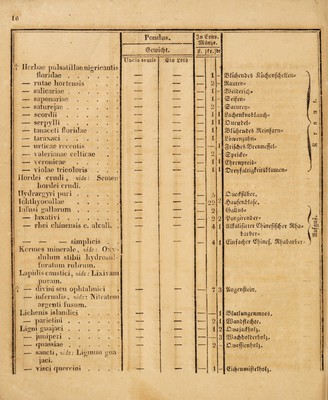 16
Pondus.
In Conv. Münze.
Gewicht.
fl. kr. dr
Uncia semis
Ein Loth
† Herbae pulsatillae nigricantis floridae — — 1 - Blühendes Küchenschellen=
— rutae hortensis — — 2 - Rauten=
— salicariae — — 1 - Weiderich=
— saponariae — — 1 - Seifen=
— saturejae — — 2 - Saturey=
— scordii — — 1 Lachenknoblauch=
— serpylli — — 1 Quendel=
— tanaceti floridae — — 1 Blühendes Reinfarn=
— taraxaci — — 1 Löwenzahn=
— urticae recentis — — Frisches Brennessel=
— valerianae celticae — — 2 - Speick=
— veronicae — — 1 Ehrenpreis=
— violae tricoloris — — 1 Dreyfaltigkeitsblumen=
Kraut.
Hordei crudi, vide: Semen hordei crudi.
Hydrargyri puri — — 5 Quecksilber.
Ichthyocollae — — 22 2 Hausenblase.
Infusi gallarum — — 2 Gallus=
— laxativi — — 2 2 Purgirender=
— rhei chinensis c. alcali. — — 4 1 Alkalisirter Chinesischer Rhabarber=
— — simplicis — — 4 1 Einfacher Chines. Rhabarber=
Aufguß.
Kermes minerale, vide: Oxydulum stibii hydrosulfuratum rubrum.
Lapidis caustici, vide: Lixivum purum.
† — divini seu ophtalmici — — 7 3 Augenstein.
— infernalis, vide: Nitratem argenti fusum.
Lichenis islandici — — 1 Blutlungenmoos.
— parietini — — 2 Wandflechte.
Ligni guajaci — — 1 2 Guajackholz.
— juniperi — — 3 Wachholderholz.
— quassiae — — 2 - Quassienholz.
— sancti, vide: Lignum guajaci.
— visci quercini — — 1 Eichenmistelholz.